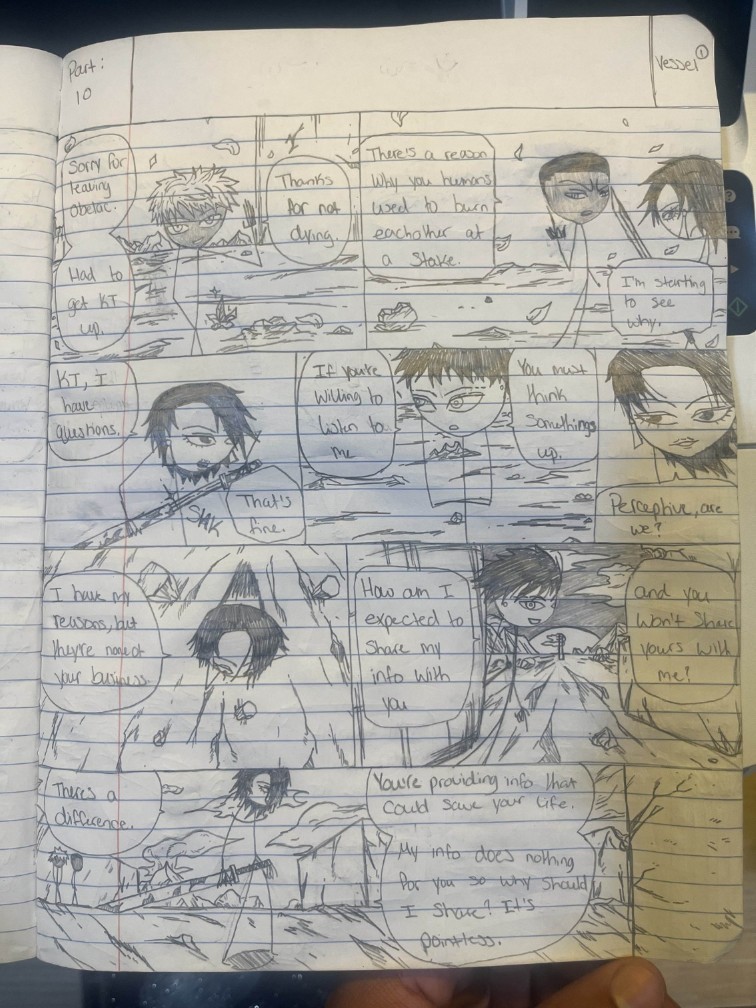 Part:
10
Vessel ①
Sorry for
leaving
Obelac.
Had to
get KT
up.
Thanks
for not
dying.
There's a reason
why you humans
used to burn
eachother at
a Stake.
I'm starting
to see
why.
KT, I
have
questions.
SHK
That's
fine.
If you're
willing to
listen to
me
You must
think
Somethings
up.
Perceptive, are
we?
I have my
reasons, but
they're none of
your business
How am I
expected to
Share my
info with
you
and you
won't share
yours with
me?
There's a
difference.
You're providing info that
could save your life.
My info does nothing
for you so why should
I share? It's
pointless.